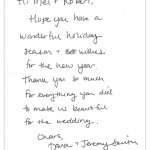 Hi Mel + Robert,
Hope you have a
wonderful holiday
season + Best wishes
for the new year
Thank you so much
for everything you did
to make us beautiful
for the wedding.
Cheers,
Dana + Jeremy